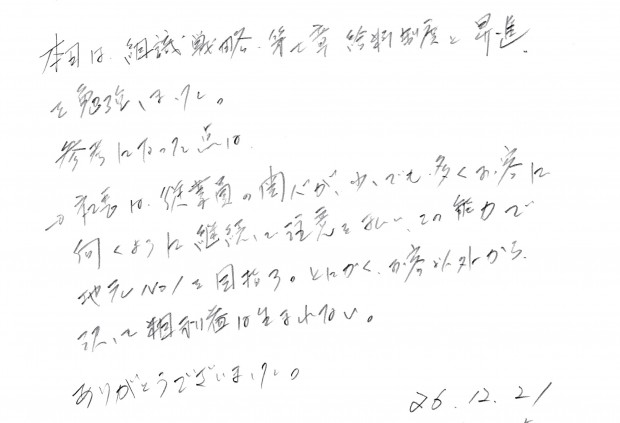 本日は、組識戦略、第七章 給料制度と昇進、
を勉強しました。
参考になった点は、
→ 社長は、従業員の関心が、少しでも多くお客に
向くように継続して注意をはらい、この能力で
地元No1を目指す。とにかく、お客以外から、
決して粗利益は生まれない。
ありがとうございました。
26.12.21